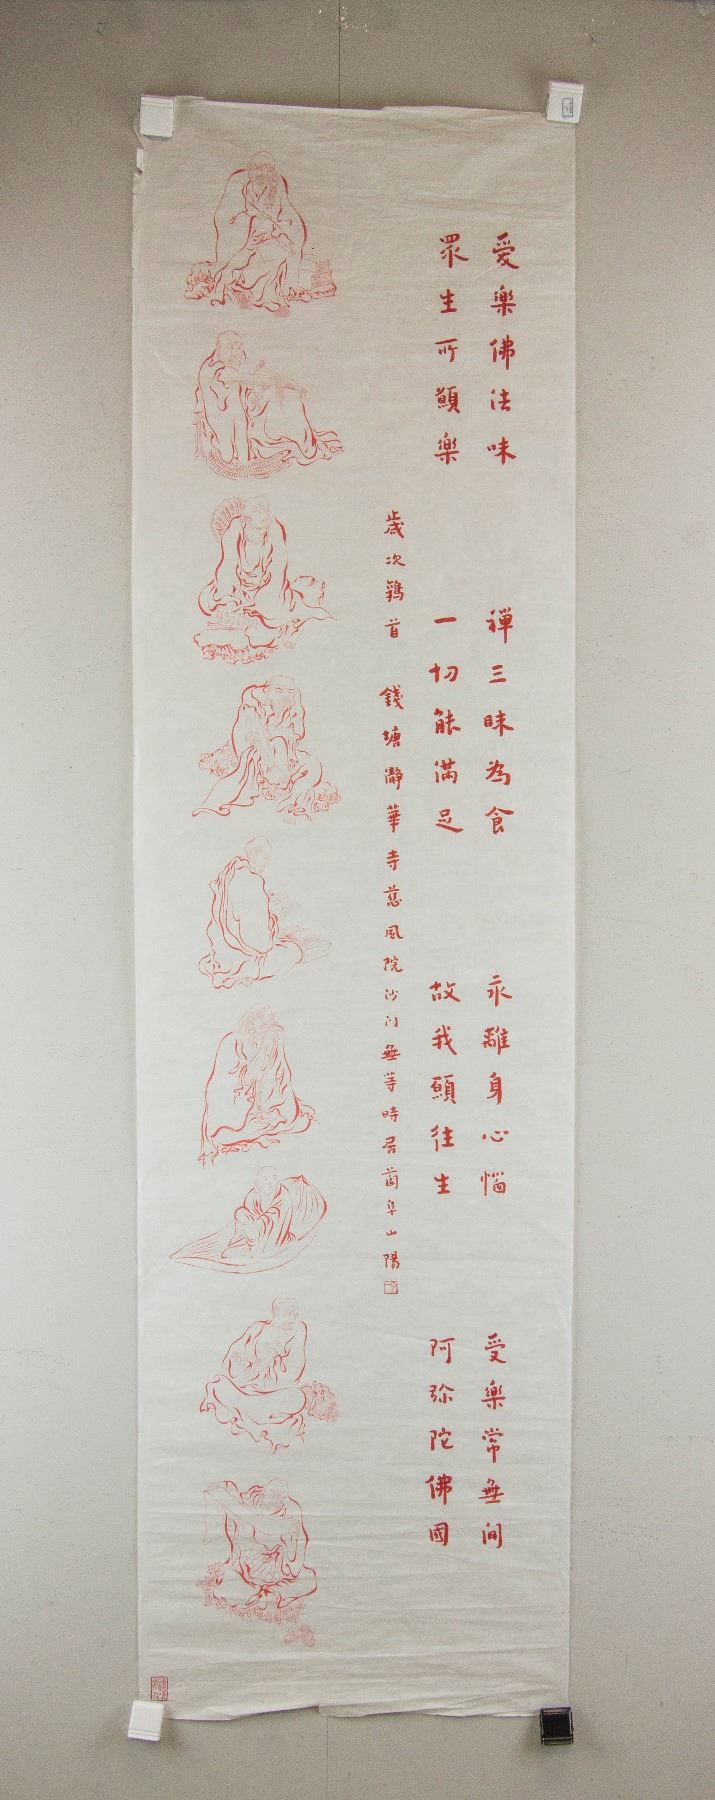 爱樂佛法味 禅三昧為食 永離身心惱 受樂常無间
眾生所願樂 一切能滿足 故我願往生 阿弥陀佛國
歲次鶉首 錢塘瀞華寺慈風院沙门無等時居蘭阜山陽